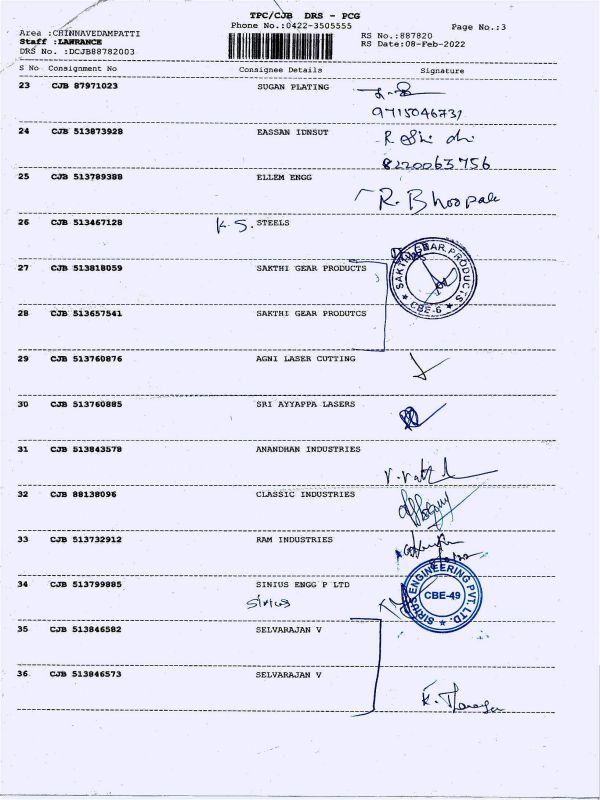 TPC/CJB DRS - PCG
Phone No.:0422-3505555
Page No.:3
Area :CHINNAVEDAMPATTI
Staff :LAWRANCE
DRS No. :DCJB88782003
RS No.:887820
RS Date:08-Feb-2022
S No Consignment No Consignee Details Signature
23 CJB 87971023 SUGAN PLATING
9715046731
24 CJB 513873928 EASSAN IDNSUT
8220063756
25 CJB 513789388 ELLEM ENGG
R. Bhoopal
26 CJB 513467128 K.S. STEELS
27 CJB 513818059 SAKTHI GEAR PRODUCTS
SAKTHI GEAR PRODUCTS
CBE-6
28 CJB 513657541 SAKTHI GEAR PRODUTCS
29 CJB 513760876 AGNI LASER CUTTING
30 CJB 513760885 SRI AYYAPPA LASERS
31 CJB 513843578 ANANDHAN INDUSTRIES
32 CJB 88138096 CLASSIC INDUSTRIES
33 CJB 513732912 RAM INDUSTRIES
34 CJB 513799885 SINIUS ENGG P LTD
Sirius
SIRIUS ENGINEERING PVT. LTD.
CBE-49
35 CJB 513846582 SELVARAJAN V
36 CJB 513846573 SELVARAJAN V